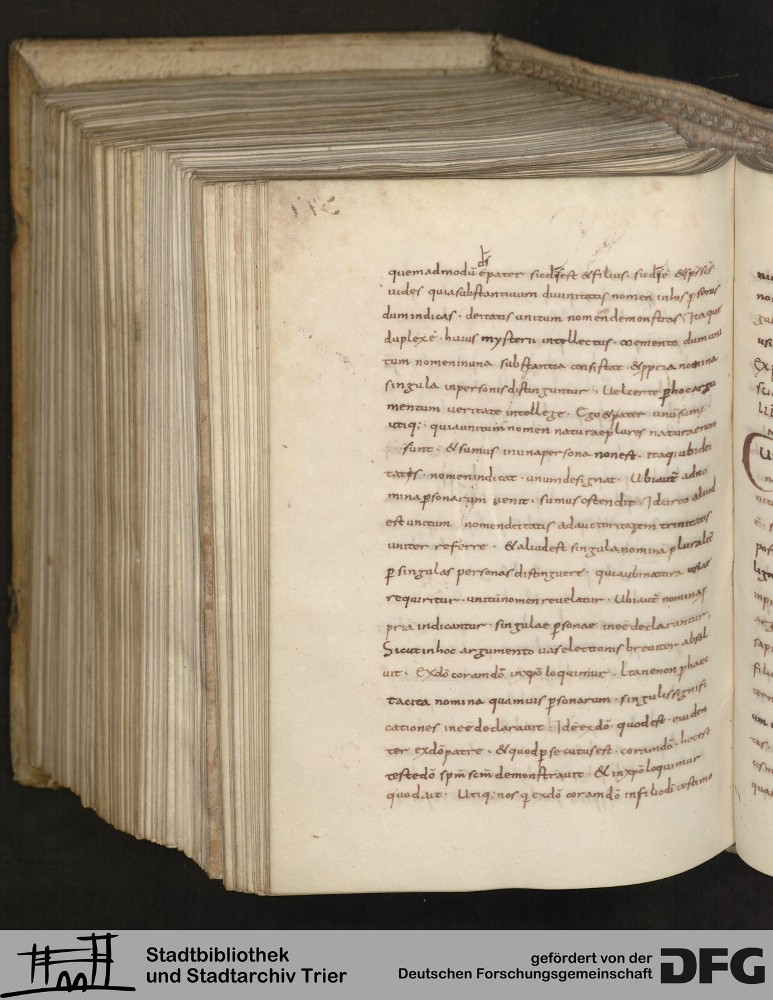 ds
quemadmodū ē pater sic ds̄ est & filius. sic ds̄ ē & sp̄s sc̄s
uides quia substantiuum diuinitatis nomen in his personis
dum indicas. deitatis unitum nomen demonstras; Itaque
duplex ē. huius mysterii intellectus. memento dum uni
tum nomen in una substantia consistat. & ppria nomina
singula in personis distinguntur; Uel certe p hoc argu
mentum ueritate intellege. Ego & pater unū sumꝰ
utiq; quia unitum nomen naturae plures naturae non
sunt. & sumus in una persona non est. itaq; ubi dei
tatis. nomen indicat. unum designat. Ubi aut̄ ad no
mina psonarum uenit. sumus ostendit. Idcirco aliud
est unitum nomen deitatis ad auctoritatem trinitatis
uniter referre. & aliud est singula nomina pluralit̄
p singulas personas distinguere. quia ubi natura unitae
requiritur. unitū nomen reuelatur. Ubi aut̄ nomina p
pria indicantur. singulae psonae in eē declarantur;
Sicut in hoc argumento uas electionis breuiter absol
uit. Ex dō coram dō in xp̄o loquimur. Et an non p haec
tacita nomina quamuis psonarum. singulis signifi
cationes in eē declarauit. Id ē ex dō. quod est. euiden
ter ex dō patre. & quod p se cutus est. coram dō. hoc est
teste dō sp̄m sc̄m demonstrauit. & in xp̄o loquimur
quod ait. Utiq; nos q ex dō coram dō in filio dei testimo
Stadtbibliothek
und Stadtarchiv Trier
gefördert von der
Deutschen Forschungsgemeinschaft
DFG